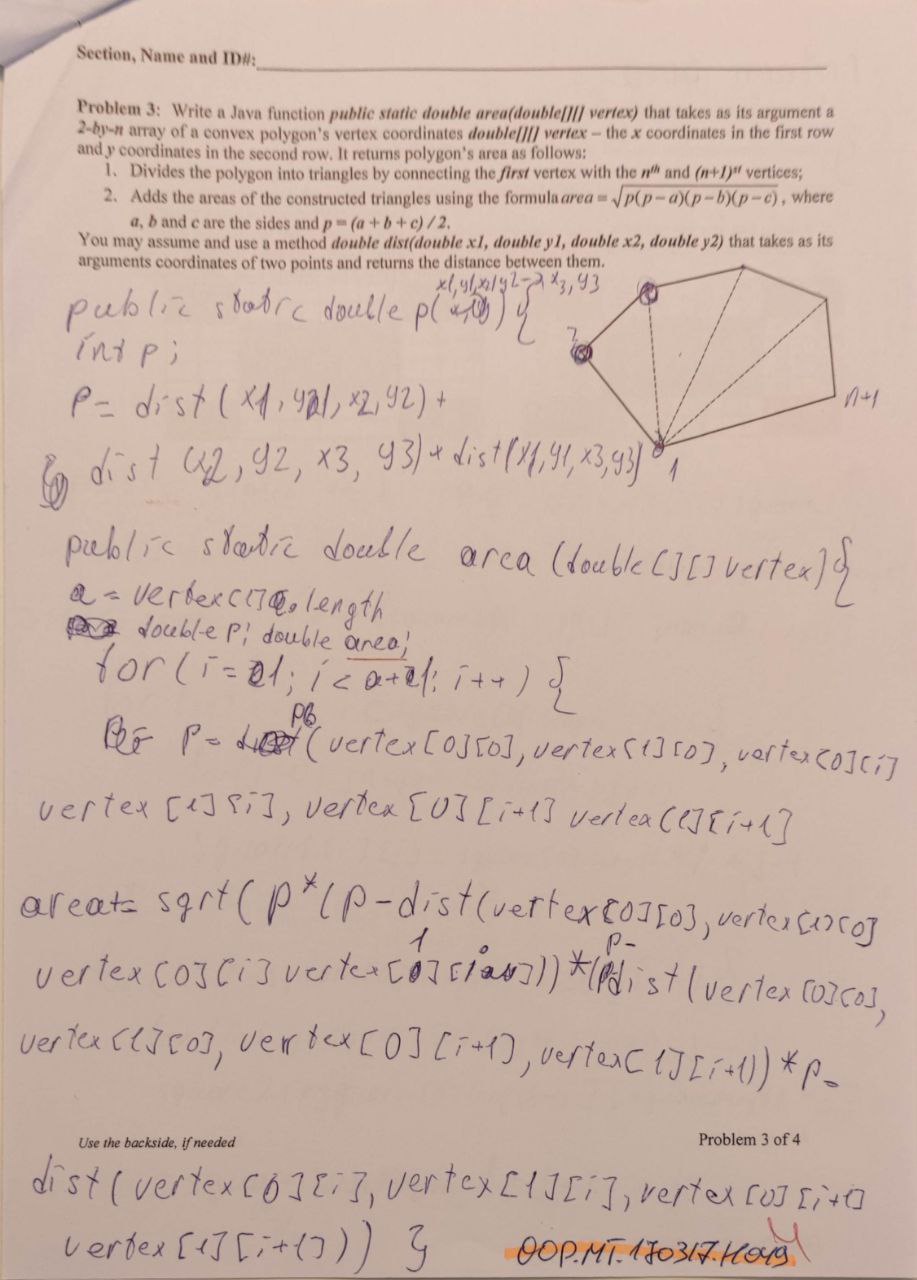 Section, Name and ID#:
Problem 3: Write a Java function public static double area(double[][] vertex) that takes as its argument a
2-by-n array of a convex polygon's vertex coordinates double[][] vertex – the x coordinates in the first row
and y coordinates in the second row. It returns polygon's area as follows:
1. Divides the polygon into triangles by connecting the first vertex with the nth and (n+1)st vertices;
2. Adds the areas of the constructed triangles using the formula area = √p(p−a)(p−b)(p−c), where
a, b and c are the sides and p = (a + b + c) / 2.
You may assume and use a method double dist(double x1, double y1, double x2, double y2) that takes as its
arguments coordinates of two points and returns the distance between them.
x1,y1,x2,y2, x3,y3
public static double p( ) {
2
int p;
n+1
p = dist (x1, y1, x2, y2) +
dist (x2, y2, x3, y3) + dist(x1,y1,x3,y3)
1
public static double area (double [][] vertex) {
a = vertex[1].length
double p; double area;
for (i = 1; i < a+1; i++) {
p = (vertex[0][0], vertex[1][0], vertex[0][i]
vertex [1][i], vertex [0][i+1] vertex[1][i+1]
area+= sqrt( p*(p-dist(vertex[0][0], vertex[1][0]
vertex [0][i] vertex[1][i]))*(p-dist(vertex [0][0],
vertex [1][0], vertex [0][i+1], vertex[1][i+1))*p-
Use the backside, if needed
Problem 3 of 4
dist (vertex [0][i], vertex [1][i], vertex [0][i+1]
vertex [1][i+1])) }
OOP.MT.170317.H049